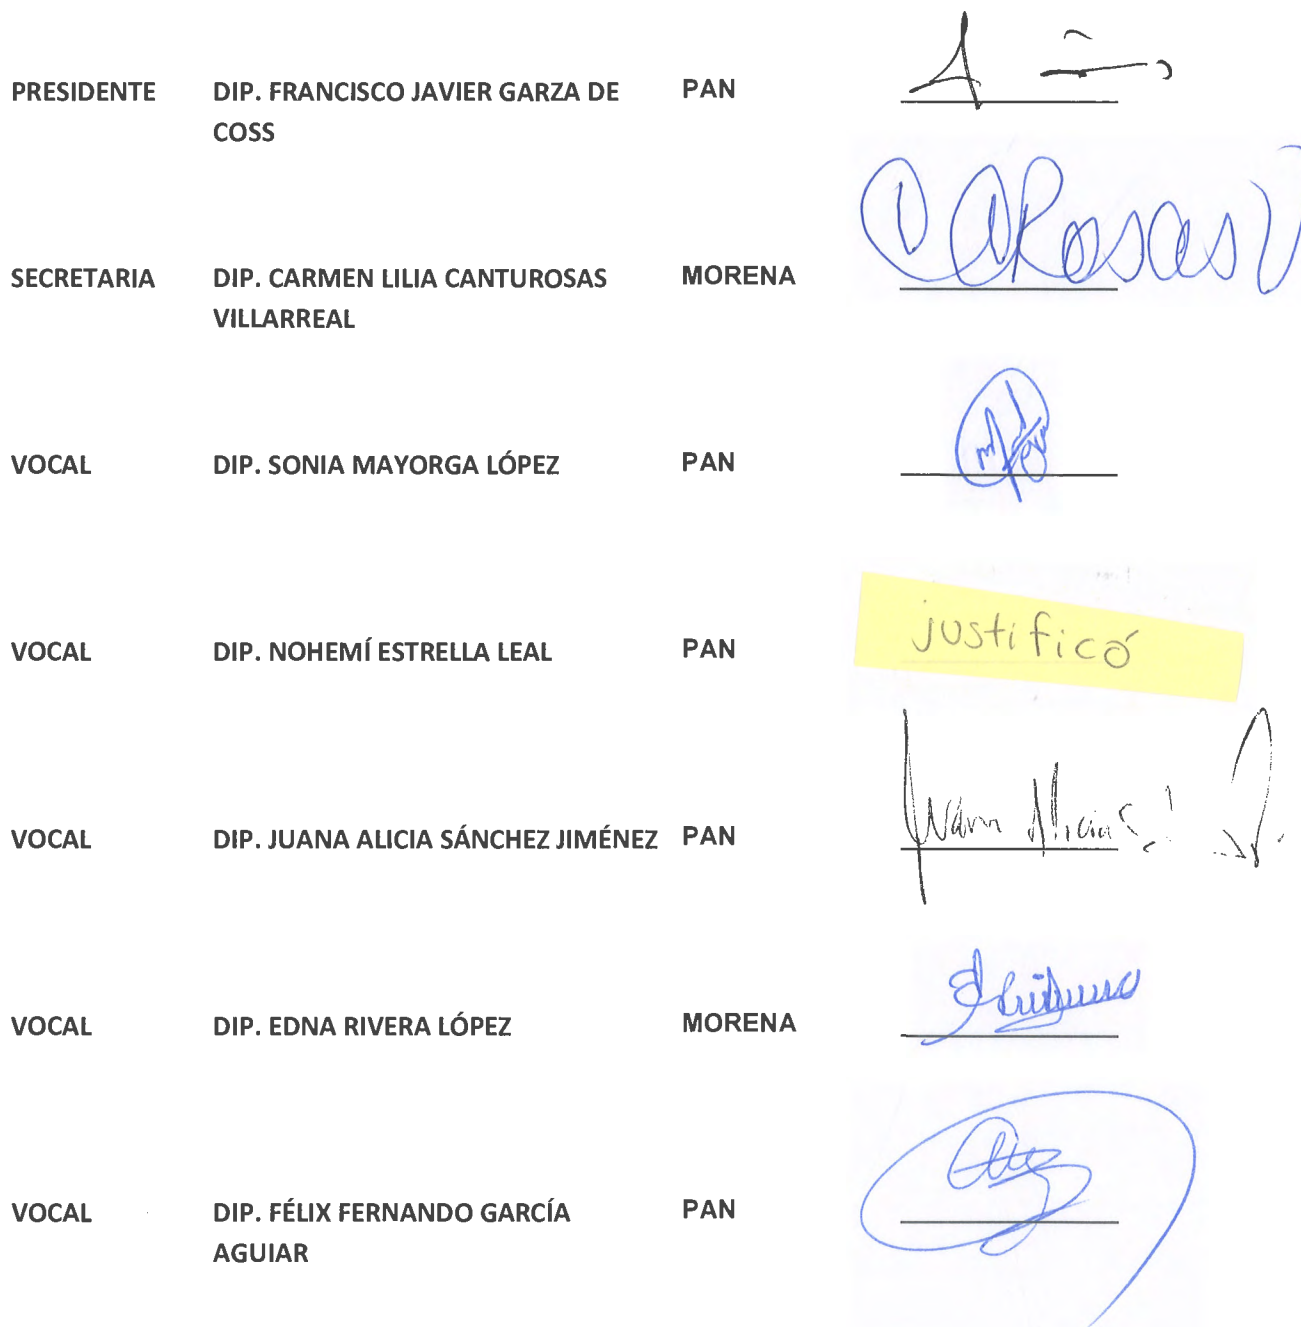 PRESIDENTE DIP. FRANCISCO JAVIER GARZA DE PAN
COSS
SECRETARIA DIP. CARMEN LILIA CANTUROSAS MORENA
VILLARREAL
VOCAL DIP. SONIA MAYORGA LÓPEZ PAN
VOCAL DIP. NOHEMÍ ESTRELLA LEAL PAN justificó
VOCAL DIP. JUANA ALICIA SÁNCHEZ JIMÉNEZ PAN Juana Alicia
VOCAL DIP. EDNA RIVERA LÓPEZ MORENA
VOCAL DIP. FÉLIX FERNANDO GARCÍA PAN
AGUIAR